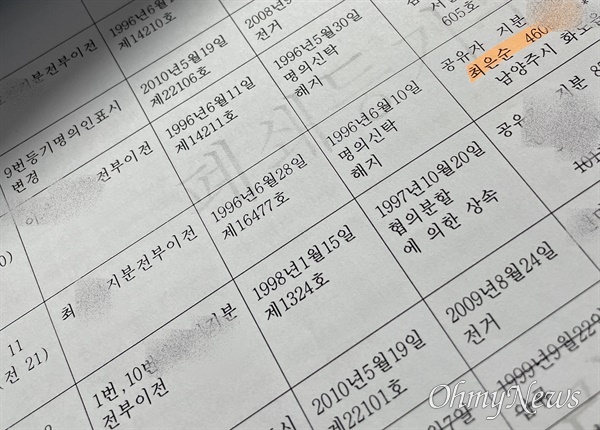 지분전부이전
1996년6월1
제14210호
2008년9
전거
605호
9번등기명의인표시
변경
2010년5월19일
제22106호
1996년5월30일
명의신탁
해지
공유자 지분
최은순 460
남양주시 화도읍
전부이전
1996년6월11일
제14211호
1996년6월10일
명의신탁
해지
공유
지분 8
최
지분전부이전
1996년6월28일
제16477호
1997년10월20일
협의분할
에 의한 상속
11
(전 21)
1번,10번
지분
전부이전
1998년1월15일
제1324호
2009년8월24일
전거
2010년5월19일
제22101호
1999년9월22일
OhmyNews